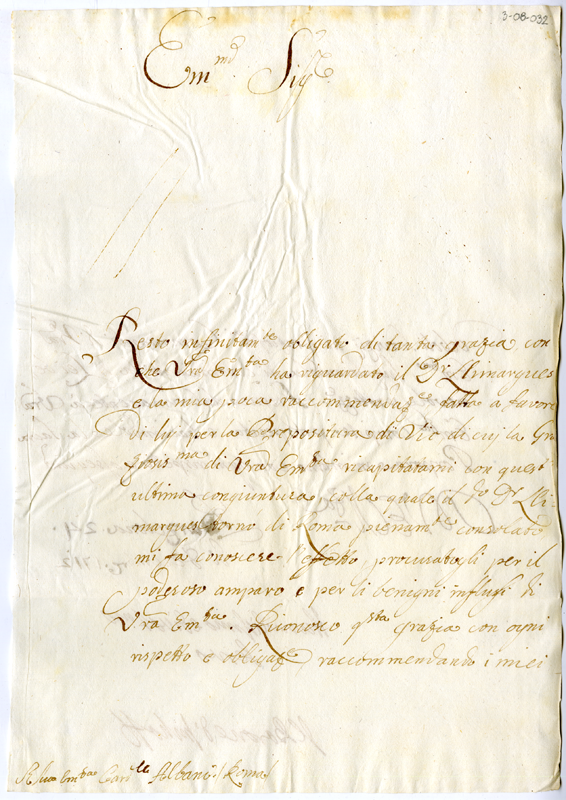 3-08-032
Em.mo Sig.re
Resto infinitam.te obligato di tanta grazia con
che Vra Em.za ha riguardato il D.r Llimargues
e la mia poca raccommendaz.e fatta a favore
di lui per la Prepositura di Vic di cuj la
di Vra Em.za ricapitatami con quest
ultima congiuntura colla quale il d.o D.r Lli-
margues torno di Roma pienam.te consolato
mi fa conoscere l'effetto procuratogli per il
poderoso amparo e per li benigni influssi di
Vra Em.za. Riconosco q.sta grazia con ogni
rispetto e obligaz.e, raccommendando i miei
Card.le Albani / Roma /